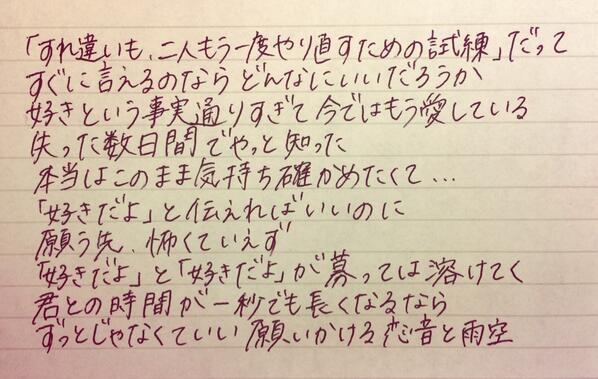 「すれ違いも、二人もう一度やり直すための試練」だって
すぐに言えるのなら どんなにいいだろうか
好きという事実通りすぎて 今ではもう愛している
失った数日間でやっと知った
本当はこのまま気持ち確かめたくて…
「好きだよ」と伝えればいいのに
願う先、怖くていえず
「好きだよ」と「好きだよ」が募っては溶けてく
君との時間が一秒でも長くなるなら
ずっとじゃなくていい 願いかける 恋音と雨空